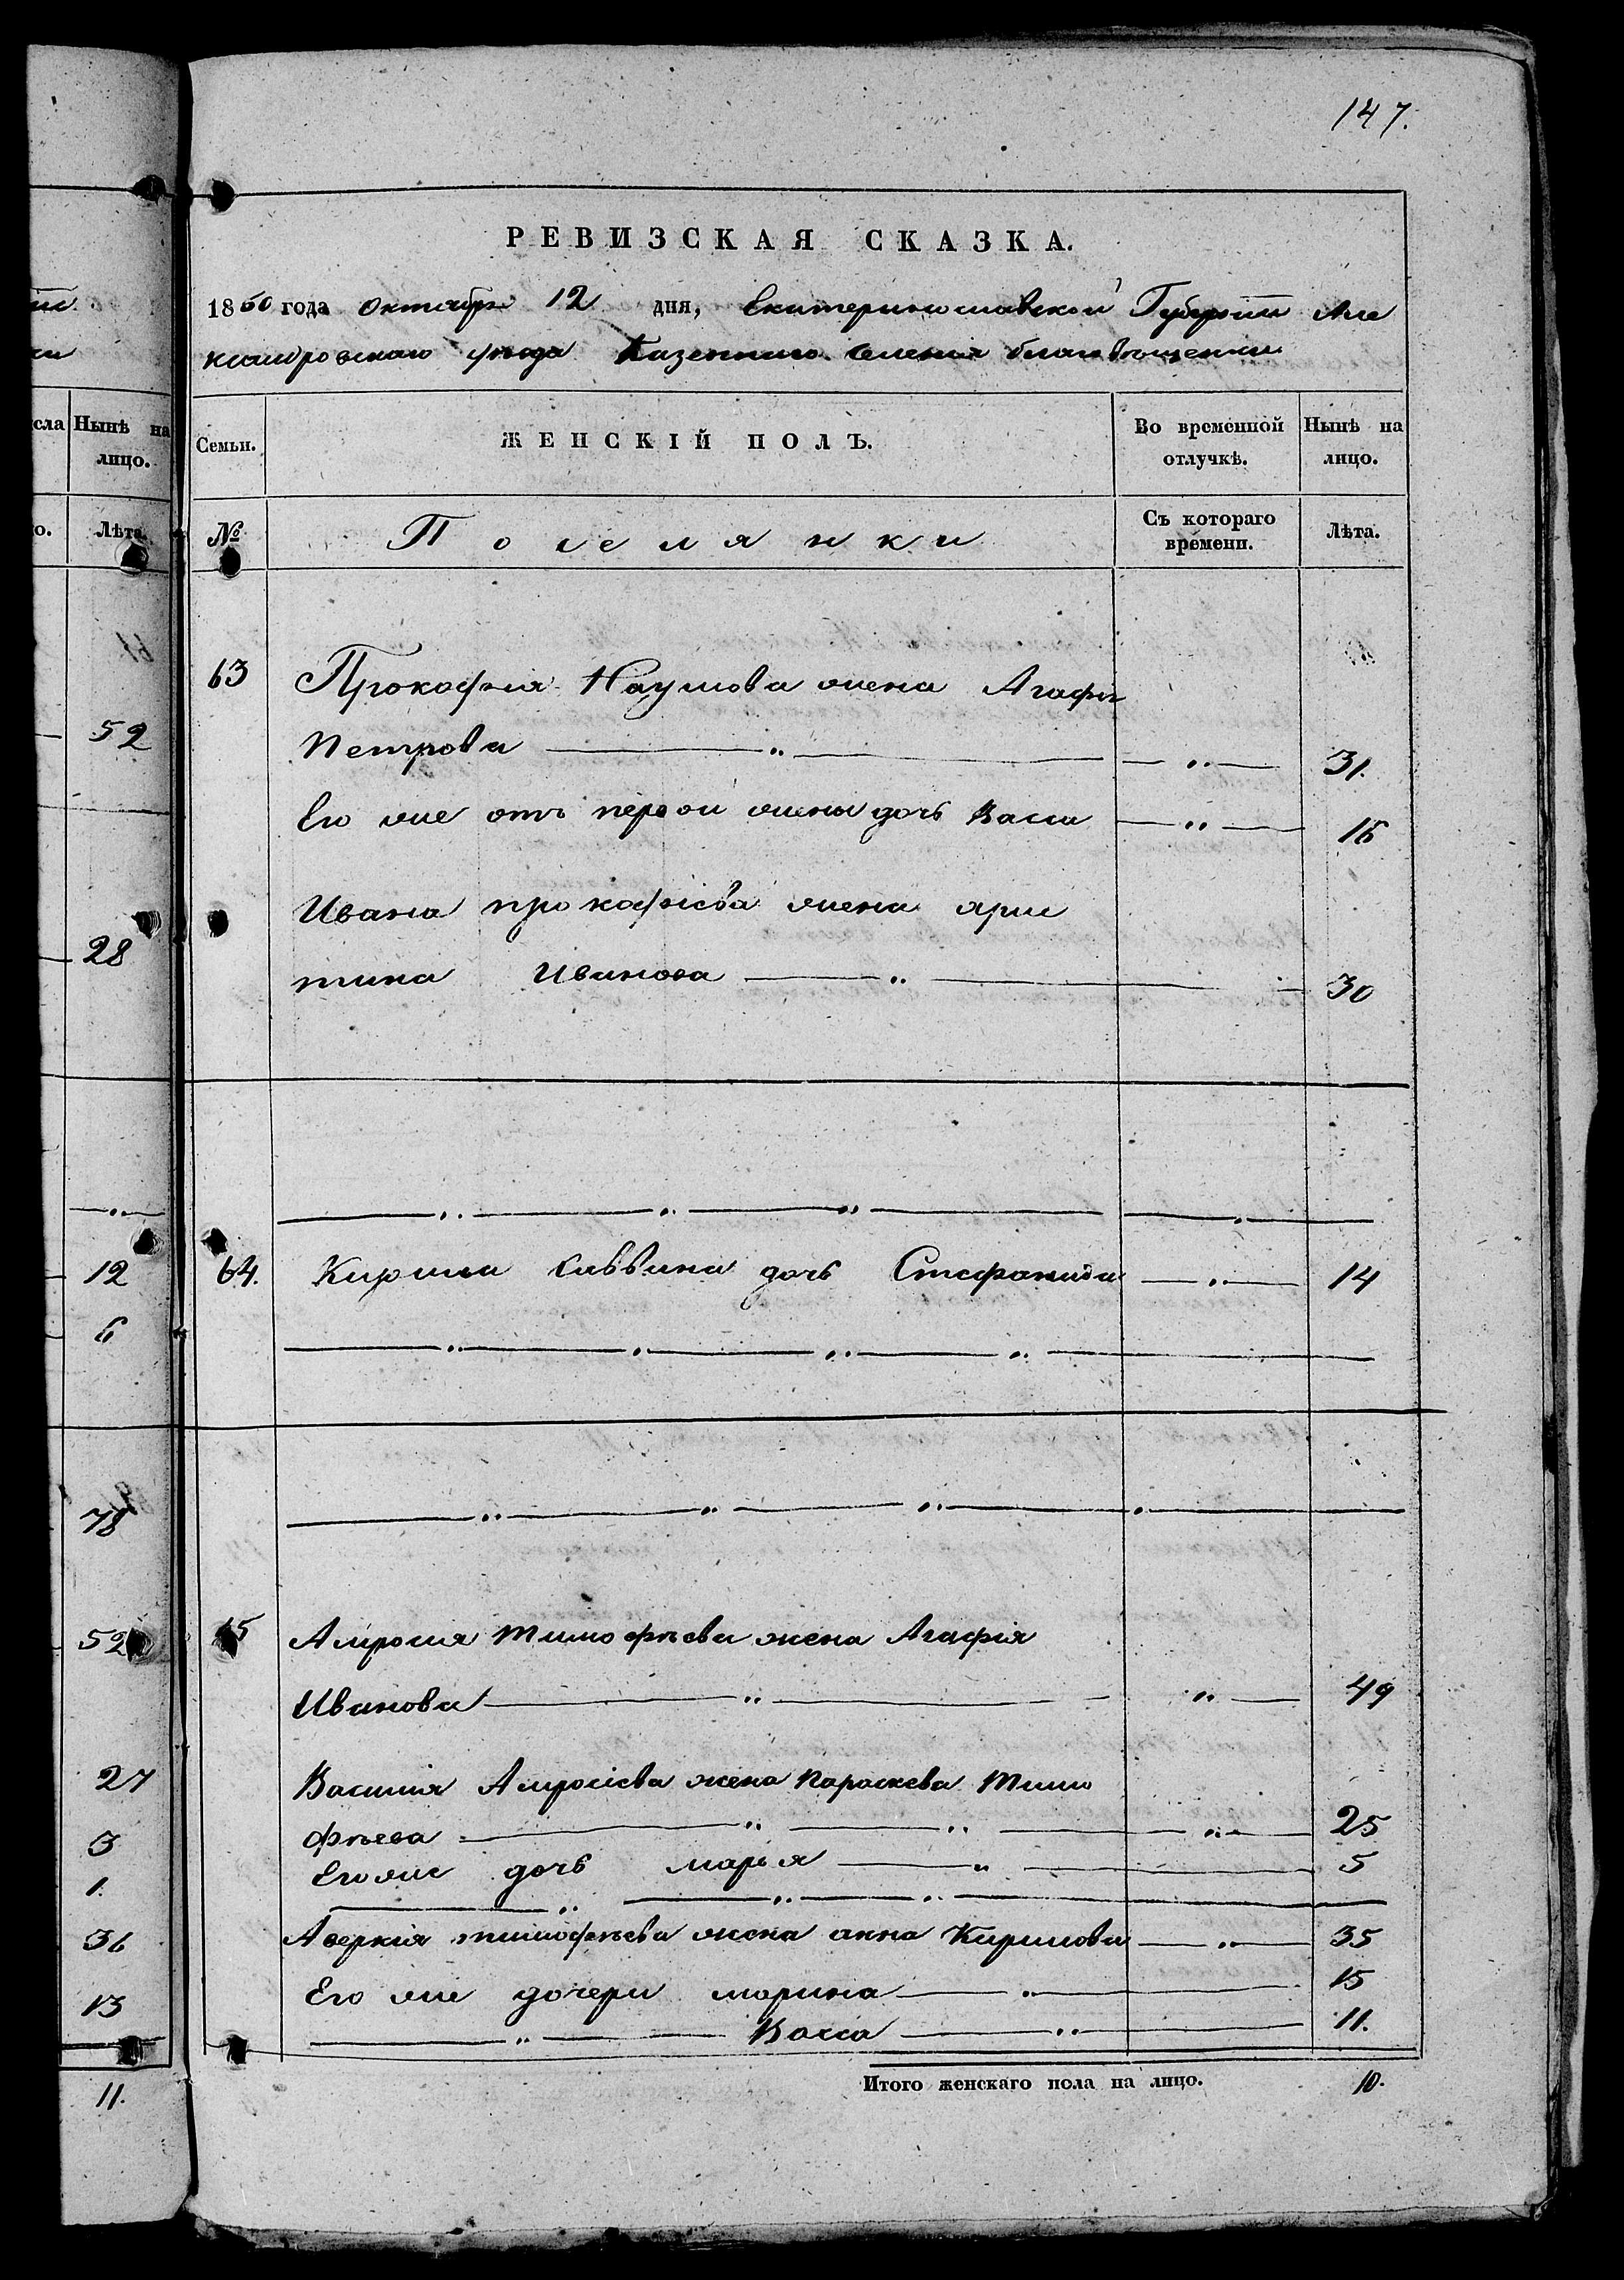 147.
РЕВИЗСКАЯ СКАЗКА.
1850 года Октября 12 дня, Екатеринославской Губернии Але
ксандровскаго уѣзда Казеннаго селения благовѣщенки
сла Нынѣ на лицо.
Семьи. ЖЕНСКІЙ ПОЛЪ. Во временной отлучкѣ. Нынѣ на лицо.
о. Лѣта.
№ Поселянки Съ котораго времени. Лѣта.
63 Прокофия Наумова жена Агафия
Петрова 31.
52
Его же отъ первой жены дочь Васса 15
Ивана прокафиева жена хрис
28
тина Иванова 30
12
64. Кирила Саввина дочь Стефанида 14
6
78
52
65 Амросия Тимофѣева жена Агафия
Иванова 49
27
Василия Амросиева жена Параскева Тимо
3
фѣева 25
1.
Его же дочь марья 5
36
Аверкия тимофѣева жена анна Кирилова 35
13
Его же дочери марина 15
Васса 11.
Итого женскаго пола на лицо. 10.
11.